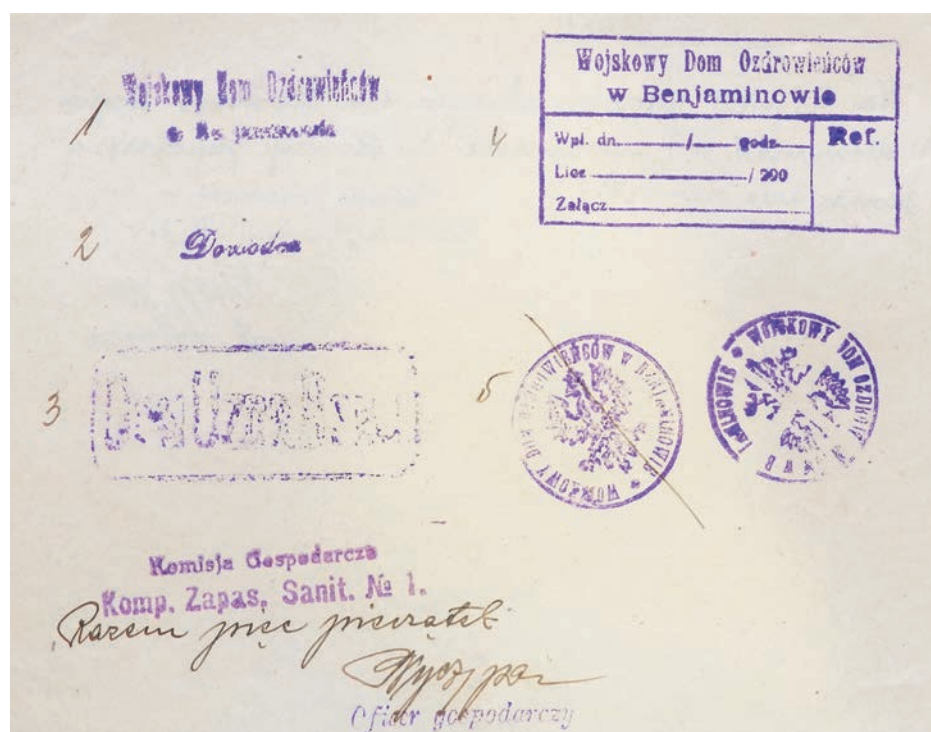 1 Wojskowy Dom Ozdrowieńców
2 Dowódca
3
4 Wojskowy Dom Ozdrowieńców
w Benjaminowie
Wpł. dn. / godz.
Ref.
Licz / 200
Załącz.
5 WOJSKOWY DOM OZDROWIEŃCÓW W BENJAMINOWIE
WOJSKOWY DOM OZDROW W B JAMINOWIE
Komisja Gospodarcza
Komp. Zapas. Sanit. № 1.
Razem pięć pieczątek
Oficer gospodarczy